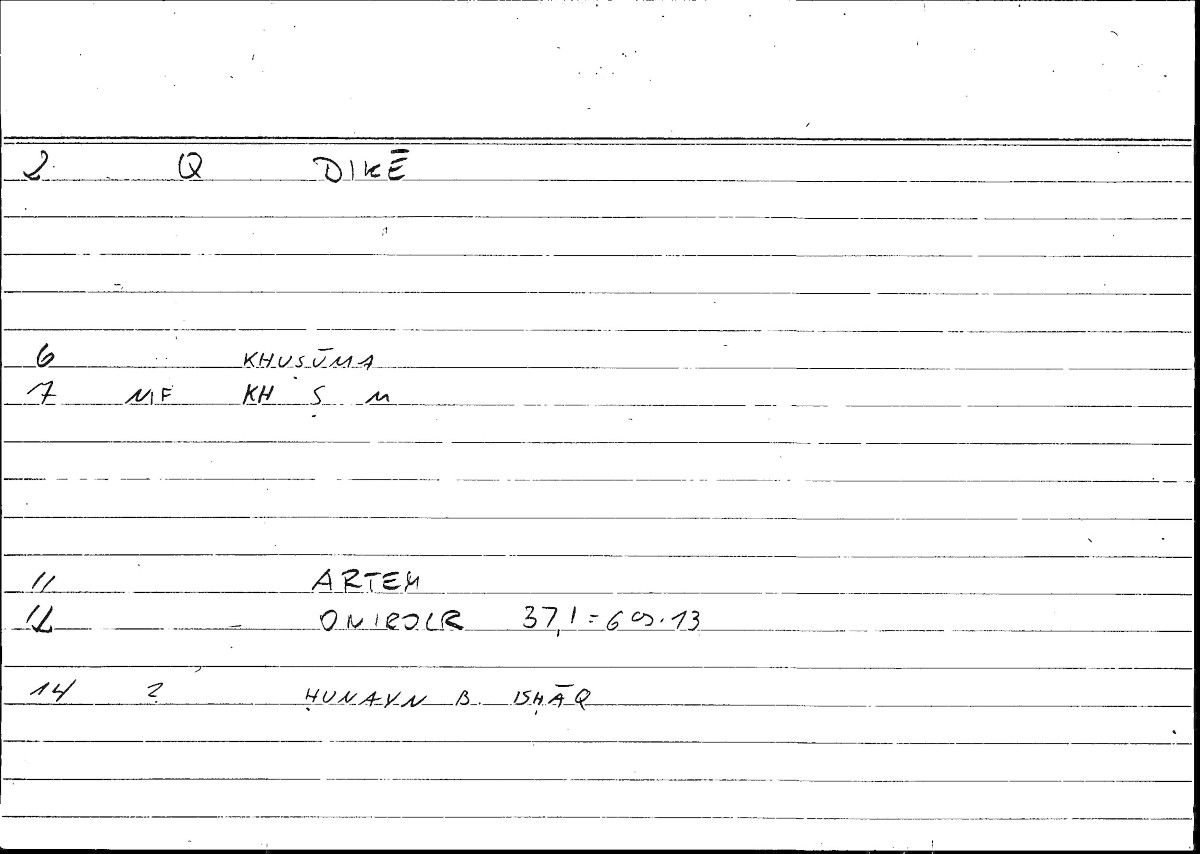 2 Q DIKĒ
6 KHUṢŪMA
7 NIF KH Ṣ M
11 ARTEM
12 ONIROCR 37,1 = 69.13
14 2 ḤUNAYN B. ISḤĀQ